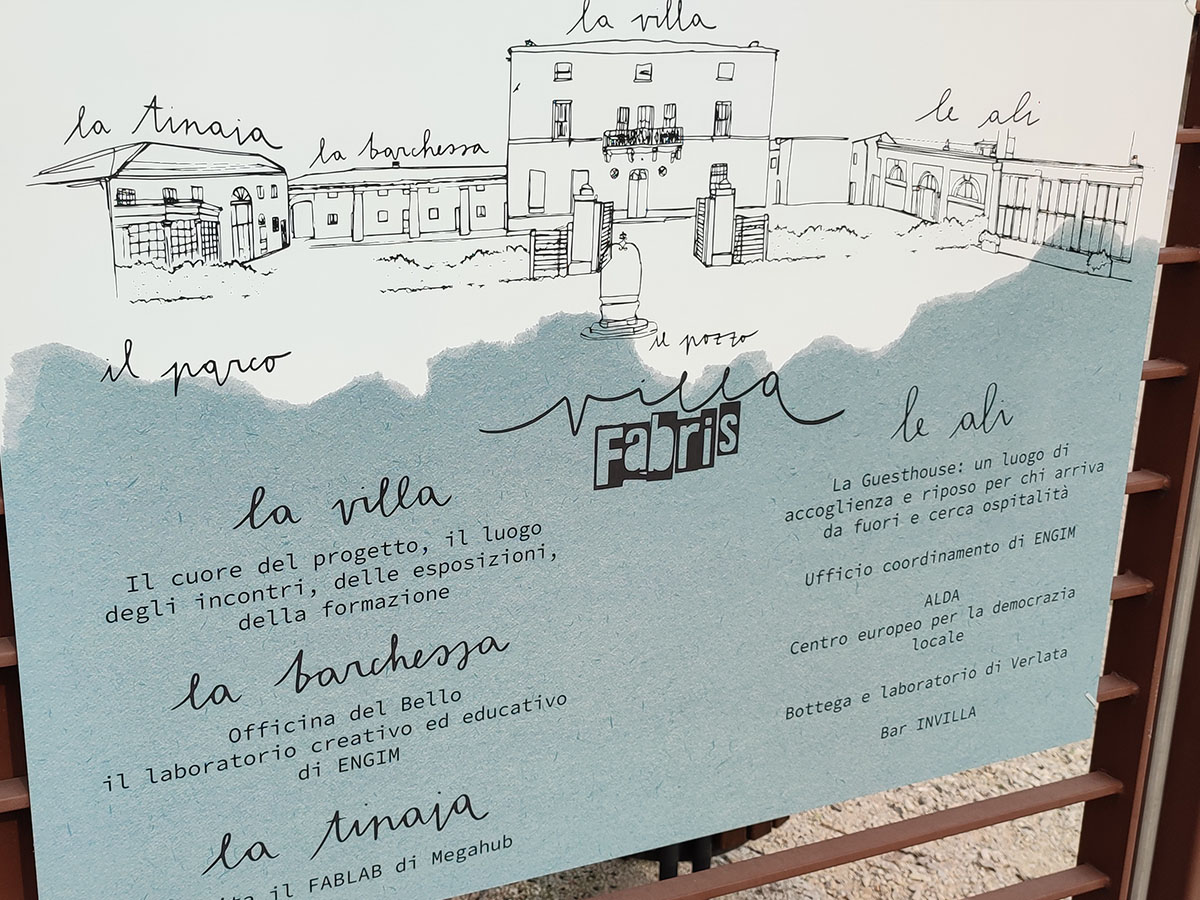 la villa
la tinaia
la barchessa
le ali
il parco
il pozzo
villa
Fabris
la villa
Il cuore del progetto, il luogo
degli incontri, delle esposizioni,
della formazione
la barchessa
Officina del Bello
il laboratorio creativo ed educativo
di ENGIM
la tinaja
il FABLAB di Megahub
le ali
La Guesthouse: un luogo di
accoglienza e riposo per chi arriva
da fuori e cerca ospitalità
Ufficio coordinamento di ENGIM
ALDA
Centro europeo per la democrazia
locale
Bottega e laboratorio di Verlata
Bar INVILLA